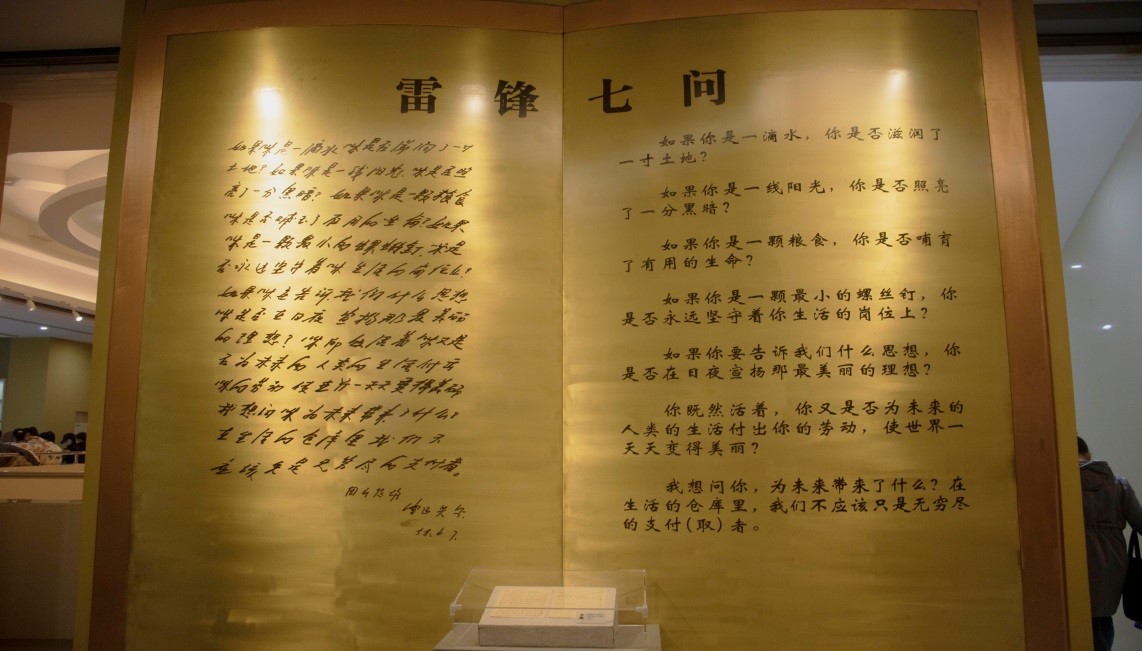 雷锋七问
如果你是一滴水 你是否滋润了一寸
土地?如果你是一线阳光 你是否照
亮了一分黑暗?如果你是一颗粮食
你是否哺育了有用的生命?如果
你是一颗最小的螺丝钉 你是
否永远坚守着你生活的岗位上?
如果你要告诉我们什么思想
你是否在日夜宣扬那最美丽
的理想?你既然活着 你又是
否为未来的人类的生活付出
你的劳动 使世界一天天变得美丽
我想问你 为未来带来了什么?
在生活的仓库里 我们不
应该只是无穷尽的支付者。
如果你是一滴水,你是否滋润了
一寸土地?
如果你是一线阳光,你是否照亮
了一分黑暗?
如果你是一颗粮食,你是否哺育
了有用的生命?
如果你是一颗最小的螺丝钉,你
是否永远坚守着你生活的岗位上?
如果你要告诉我们什么思想,你
是否在日夜宣扬那最美丽的理想?
你既然活着,你又是否为未来的
人类的生活付出你的劳动,使世界一
天天变得美丽?
我想问你,为未来带来了什么?在
生活的仓库里,我们不应该只是无穷尽
的支付(取)者。